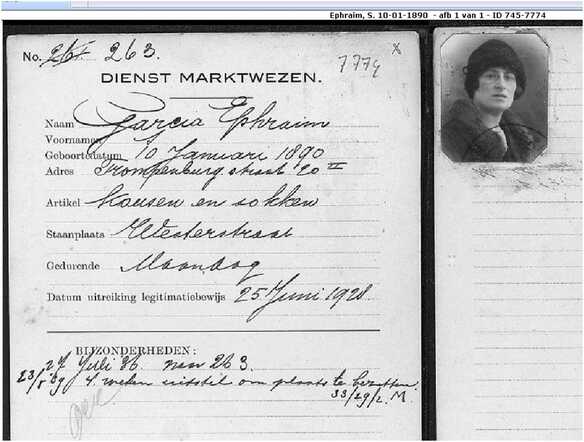 Ephraim, S. 10-01-1890 - afb 1 van 1 - ID 745-7774
No. 263.
7774
x
DIENST MARKTWEZEN.
Naam Garcia Ephraim
Voornamen
Geboortedatum 10 Januari 1890
Adres Trompenburgstraat 20 II
Artikel kousen en sokken
Staanplaats Westerstraat
Gedurende Maandag
Datum uitreiking legitimatiebewijs 25 Juni 1928.
BIJZONDERHEDEN:
27 Juli 36. 263.
23/5 39 4 weken uitstel om plaats te bezetten.
33/29/2. M.